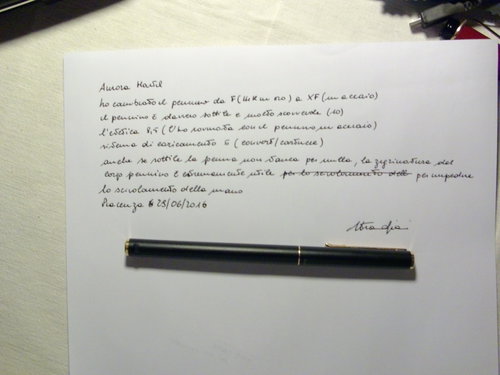 Aurora Hastil
ho cambiato il pennino da F (14K in oro) a XF (in acciaio)
il pennino è davvero sottile e molto scorrevole (10)
l'estetica 8,5 (l'ho rovinata con il pennino in acciaio)
sistema di caricamento 6 (convert/cartucce)
anche se sottile la penna non stanca per nulla, la zigrinatura del
corpo pennino è estremamente utile per lo scivolamento dell per impedire
lo scivolamento della mano
Piacenza 28/06/2016